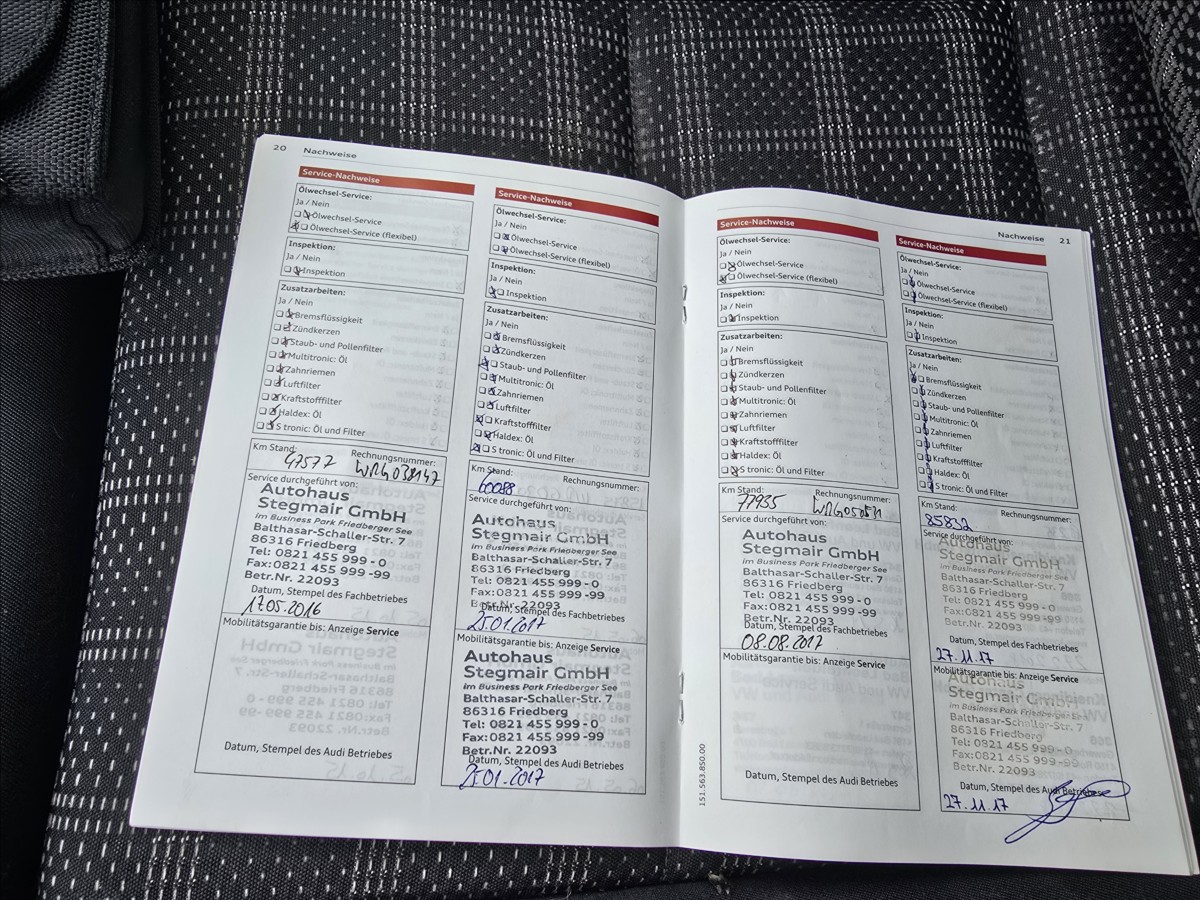 20 Nachweise
Service-Nachweise
Ölwechsel-Service:
Ja / Nein
Ölwechsel-Service
Ölwechsel-Service (flexibel)
Inspektion:
Ja / Nein
Inspektion
Zusatzarbeiten:
Ja / Nein
Bremsflüssigkeit
Zündkerzen
Staub- und Pollenfilter
Multitronic: Öl
Zahnriemen
Luftfilter
Kraftstofffilter
Haldex: Öl
S tronic: Öl und Filter
Km Stand: Rechnungsnummer:
47577
Service durchgeführt von:
Autohaus
Stegmair GmbH
im Business Park Friedberger See
Balthasar-Schaller-Str. 7
86316 Friedberg
Tel: 0821 455 999 - 0
Fax: 0821 455 999 -99
Betr.Nr. 22093
Datum, Stempel des Fachbetriebes
17.05.2016
Mobilitätsgarantie bis: Anzeige Service
Datum, Stempel des Audi Betriebes
Service-Nachweise
Ölwechsel-Service:
Ja / Nein
Ölwechsel-Service
Ölwechsel-Service (flexibel)
Inspektion:
Ja / Nein
Inspektion
Zusatzarbeiten:
Ja / Nein
Bremsflüssigkeit
Zündkerzen
Staub- und Pollenfilter
Multitronic: Öl
Zahnriemen
Luftfilter
Kraftstofffilter
Haldex: Öl
S tronic: Öl und Filter
Km Stand: Rechnungsnummer:
60088
Service durchgeführt von:
Autohaus
Stegmair GmbH
im Business Park Friedberger See
Balthasar-Schaller-Str. 7
86316 Friedberg
Tel: 0821 455 999 - 0
Fax: 0821 455 999 -99
Betr.Nr. 22093
Datum, Stempel des Fachbetriebes
25.01.2017
Mobilitätsgarantie bis: Anzeige Service
Autohaus
Stegmair GmbH
im Business Park Friedberger See
Balthasar-Schaller-Str. 7
86316 Friedberg
Tel: 0821 455 999 - 0
Fax: 0821 455 999 -99
Betr.Nr. 22093
Datum, Stempel des Audi Betriebes
25.01.2017
Service-Nachweise
Ölwechsel-Service:
Ja / Nein
Ölwechsel-Service
Ölwechsel-Service (flexibel)
Inspektion:
Ja / Nein
Inspektion
Zusatzarbeiten:
Ja / Nein
Bremsflüssigkeit
Zündkerzen
Staub- und Pollenfilter
Multitronic: Öl
Zahnriemen
Luftfilter
Kraftstofffilter
Haldex: Öl
S tronic: Öl und Filter
Km Stand: Rechnungsnummer:
77935
Service durchgeführt von:
Autohaus
Stegmair GmbH
im Business Park Friedberger See
Balthasar-Schaller-Str. 7
86316 Friedberg
Tel: 0821 455 999 - 0
Fax: 0821 455 999 -99
Betr.Nr. 22093
Datum, Stempel des Fachbetriebes
08.08.2017
Mobilitätsgarantie bis: Anzeige Service
Datum, Stempel des Audi Betriebes
151.563.850.00
Nachweise 21
Service-Nachweise
Ölwechsel-Service:
Ja / Nein
Ölwechsel-Service
Ölwechsel-Service (flexibel)
Inspektion:
Ja / Nein
Inspektion
Zusatzarbeiten:
Ja / Nein
Bremsflüssigkeit
Zündkerzen
Staub- und Pollenfilter
Multitronic: Öl
Zahnriemen
Luftfilter
Kraftstofffilter
Haldex: Öl
S tronic: Öl und Filter
Km Stand: Rechnungsnummer:
85832
Service durchgeführt von:
Autohaus
Stegmair GmbH
im Business Park Friedberger See
Balthasar-Schaller-Str. 7
86316 Friedberg
Tel: 0821 455 999 - 0
Fax: 0821 455 999 -99
Betr.Nr. 22093
Datum, Stempel des Fachbetriebes
27.11.17
Mobilitätsgarantie bis: Anzeige Service
Autohaus
Stegmair GmbH
im Business Park Friedberger See
Balthasar-Schaller-Str. 7
86316 Friedberg
Tel: 0821 455 999 - 0
Fax: 0821 455 999 -99
Betr.Nr. 22093
Datum, Stempel des Audi Betriebes
27.11.17